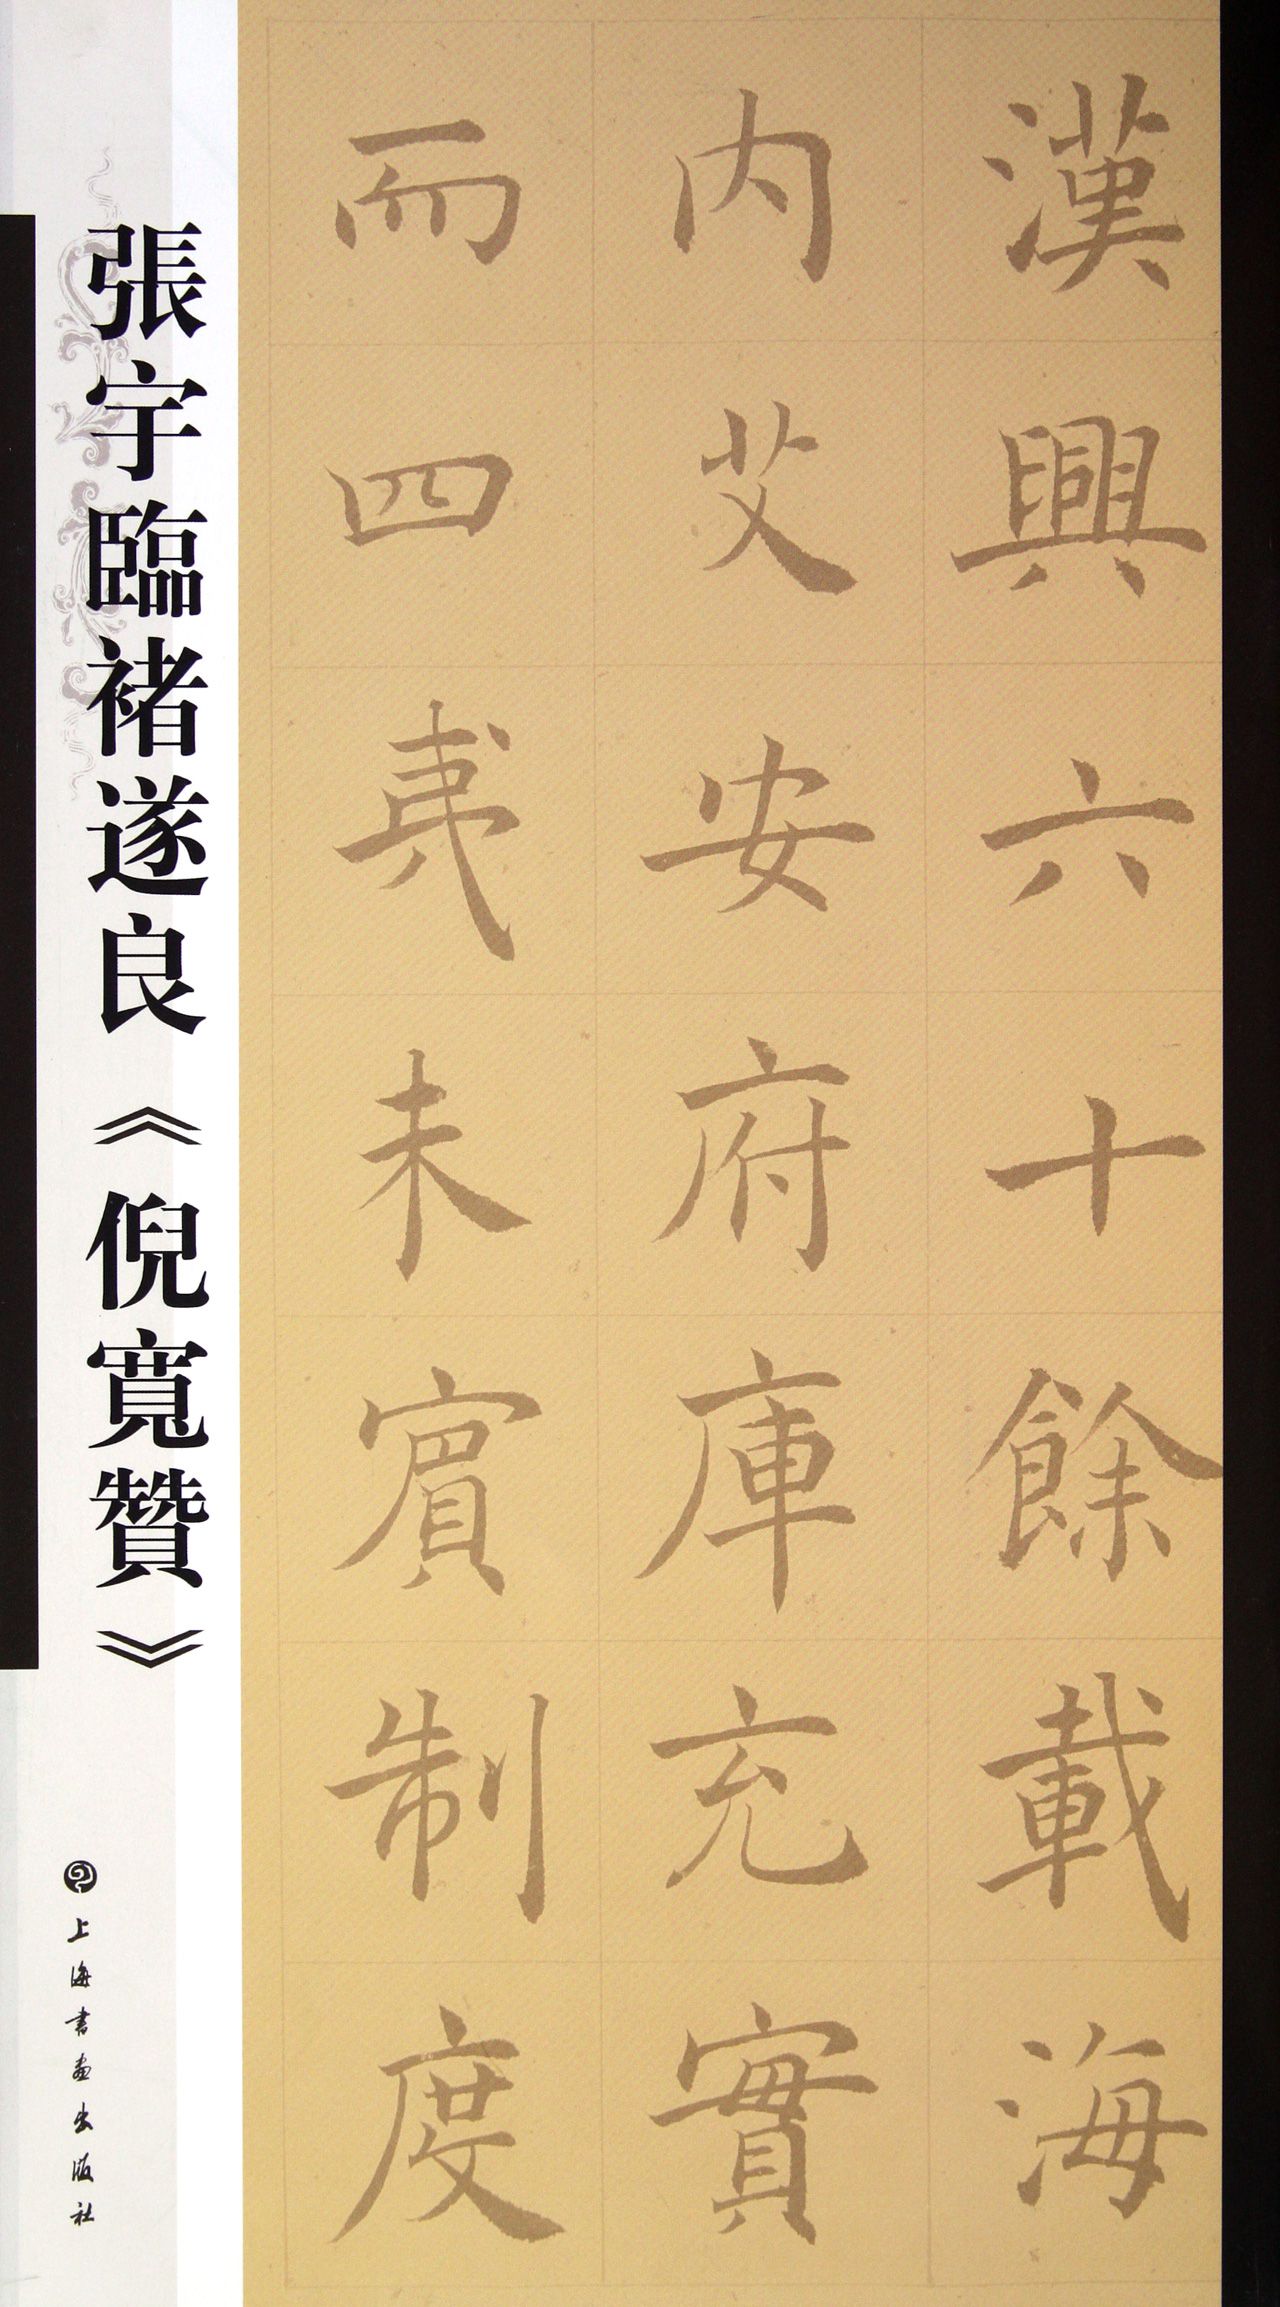 漢興六十餘載海
内艾安府庫充實
而四夷未賓制度
張宇臨褚遂良《倪寬贊》
上海書畫出版社